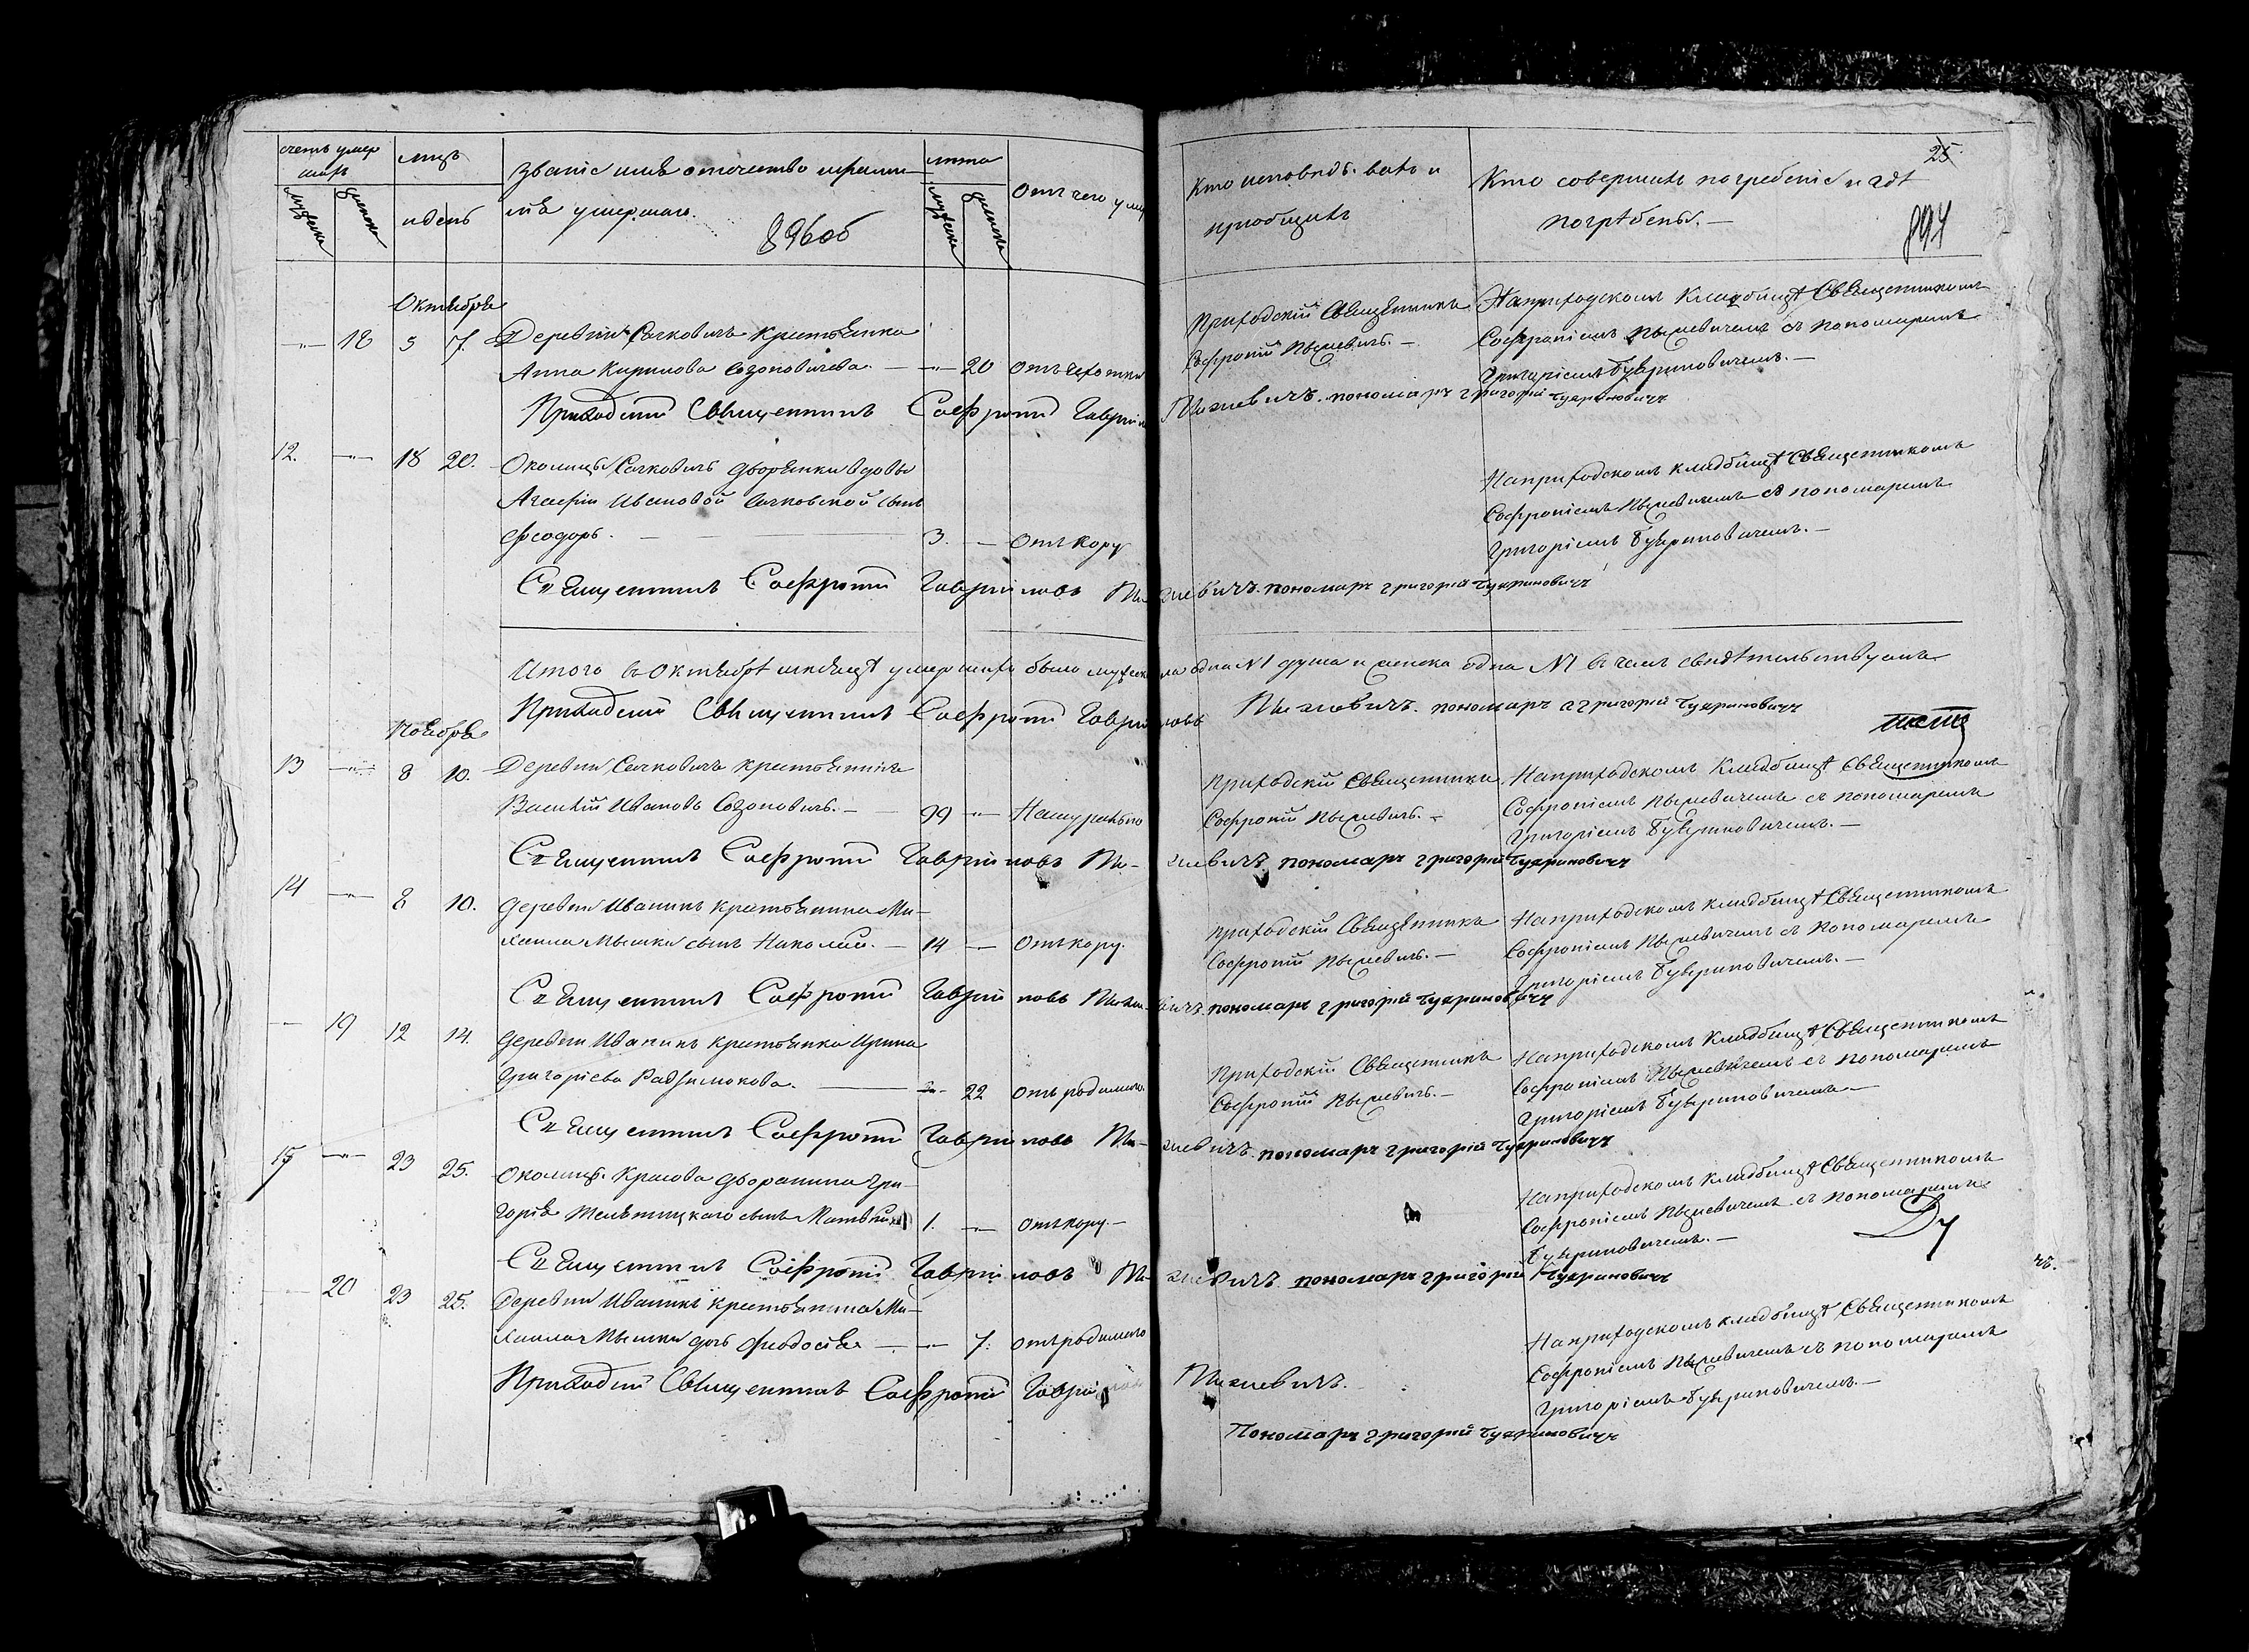 счетъ умер
шихъ
мцъ
и день
мужеска
женска
Званіе имя отечество и фамилія
умершаго.
896об
лѣта
мужеска
женска
Отъ чего умер
Кто исповѣдывалъ и
пріобщилъ
Кто совершилъ погребеніе и гдѣ
погребены.
25
Октября
— 18 5 7. Деревни Сачковичъ крестьянка
Анна Кирилова Созоновичева. — 20 Отъ чахотки
Приходскій Священникъ
Софроній Пыжевичъ. —
На приходскомъ кладбищѣ Священникомъ
Софроніемъ Пыжевичемъ съ пономаремъ
Григоріемъ Букриновичемъ. —
Приходскій Священникъ Софроній Гавріиловъ Пыжевичъ. пономарь григорій Букриновичъ
12. — 18 20. Околицы Сачковичъ дворянки вдовы
Агафіи Ивановой Сачковской сынъ
Феодоръ. — 3. — Отъ кору
На приходскомъ кладбищѣ Священникомъ
Софроніемъ Пыжевичемъ съ пономаремъ
Григоріемъ Букриновичемъ. —
Священникъ Софроній Гавріиловъ Пыжевичъ. пономарь григорій Букриновичъ
Итого въ Октябрѣ мѣсяцѣ умершихъ было мужеска одна № 1 душа и женска одна № 1 въ чемъ свидѣтельствуемъ
Приходскій Священникъ Софроній Гавріиловъ Пыжевичъ. пономарь григорій Букриновичъ
Ноября
13 — 8 10. Деревни Сачковичъ крестьянинъ
Василій Ивановъ Созоновичъ. — 99 — Натурально
Приходскій Священникъ
Софроній Пыжевичъ. —
На приходскомъ кладбищѣ Священникомъ
Софроніемъ Пыжевичемъ съ пономаремъ
Григоріемъ Букриновичемъ. —
Священникъ Софроній Гавріиловъ Пыжевичъ пономарь григорій Букриновичъ
14 — 8 10. Деревни Иваникъ крестьянина Ми-
хаила Мышки сынъ Николай. — 14 — Отъ кору.
Приходскій Священникъ
Софроній Пыжевичъ. —
На приходскомъ кладбищѣ Священникомъ
Софроніемъ Пыжевичемъ съ пономаремъ
Григоріемъ Букриновичемъ. —
Священникъ Софроній Гавріиловъ Пыжевичъ пономарь григорій Букриновичъ
— 19 12 14. Деревни Иваникъ крестьянка Ирина
Григоріева — 22 Отъ родимого
Приходскій Священникъ
Софроній Пыжевичъ. —
На приходскомъ кладбищѣ Священникомъ
Софроніемъ Пыжевичемъ съ пономаремъ
Григоріемъ Букриновичемъ —
Священникъ Софроній Гавріиловъ Пыжевичъ. пономарь григорій Букриновичъ
15 — 23 25. Околицы Красова дворанина Гри-
горія сынъ 1. — Отъ кору. —
На приходскомъ кладбищѣ Священникомъ
Софроніемъ Пыжевичемъ съ пономаремъ
Букриновичемъ. —
Священникъ Софроній Гавріиловъ Пыжевичъ. пономарь григорій Букриновичъ
20 23 25. Деревни Иваникъ крестьянина Ми-
хаила Мышки дочь Феодосія — 7. Отъ родимого
На приходскомъ кладбищѣ Священникомъ
Софроніемъ Пыжевичемъ съ пономаремъ
Григоріемъ Букриновичемъ. —
Приходскій Священникъ Софроній Гавріиловъ Пыжевичъ.
Пономарь григорій Букриновичъ